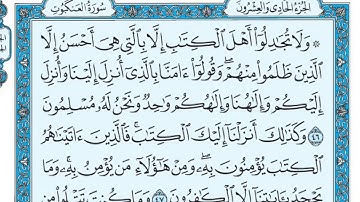 الجزء الحادي والعشرون
سورة العنكبوت
۞ وَلَا تُجَٰدِلُوٓا۟ أَهْلَ ٱلْكِتَٰبِ إِلَّا بِٱلَّتِى هِىَ أَحْسَنُ إِلَّا
ٱلَّذِينَ ظَلَمُوا۟ مِنْهُمْ ۖ وَقُولُوٓا۟ ءَامَنَّا بِٱلَّذِىٓ أُنزِلَ إِلَيْنَا وَأُنزِلَ
إِلَيْكُمْ وَإِلَٰهُنَا وَإِلَٰهُكُمْ وَٰحِدٌ وَنَحْنُ لَهُۥ مُسْلِمُونَ
٤٦ وَكَذَٰلِكَ أَنزَلْنَآ إِلَيْكَ ٱلْكِتَٰبَ ۚ فَٱلَّذِينَ ءَاتَيْنَٰهُمُ
ٱلْكِتَٰبَ يُؤْمِنُونَ بِهِۦ ۖ وَمِنْ هَٰٓؤُلَآءِ مَن يُؤْمِنُ بِهِۦ ۚ وَمَا
يَجْحَدُ بِـَٔايَٰتِنَآ إِلَّا ٱلْكَٰفِرُونَ ٤٧ وَمَا كُنتَ تَتْلُوا۟ مِن